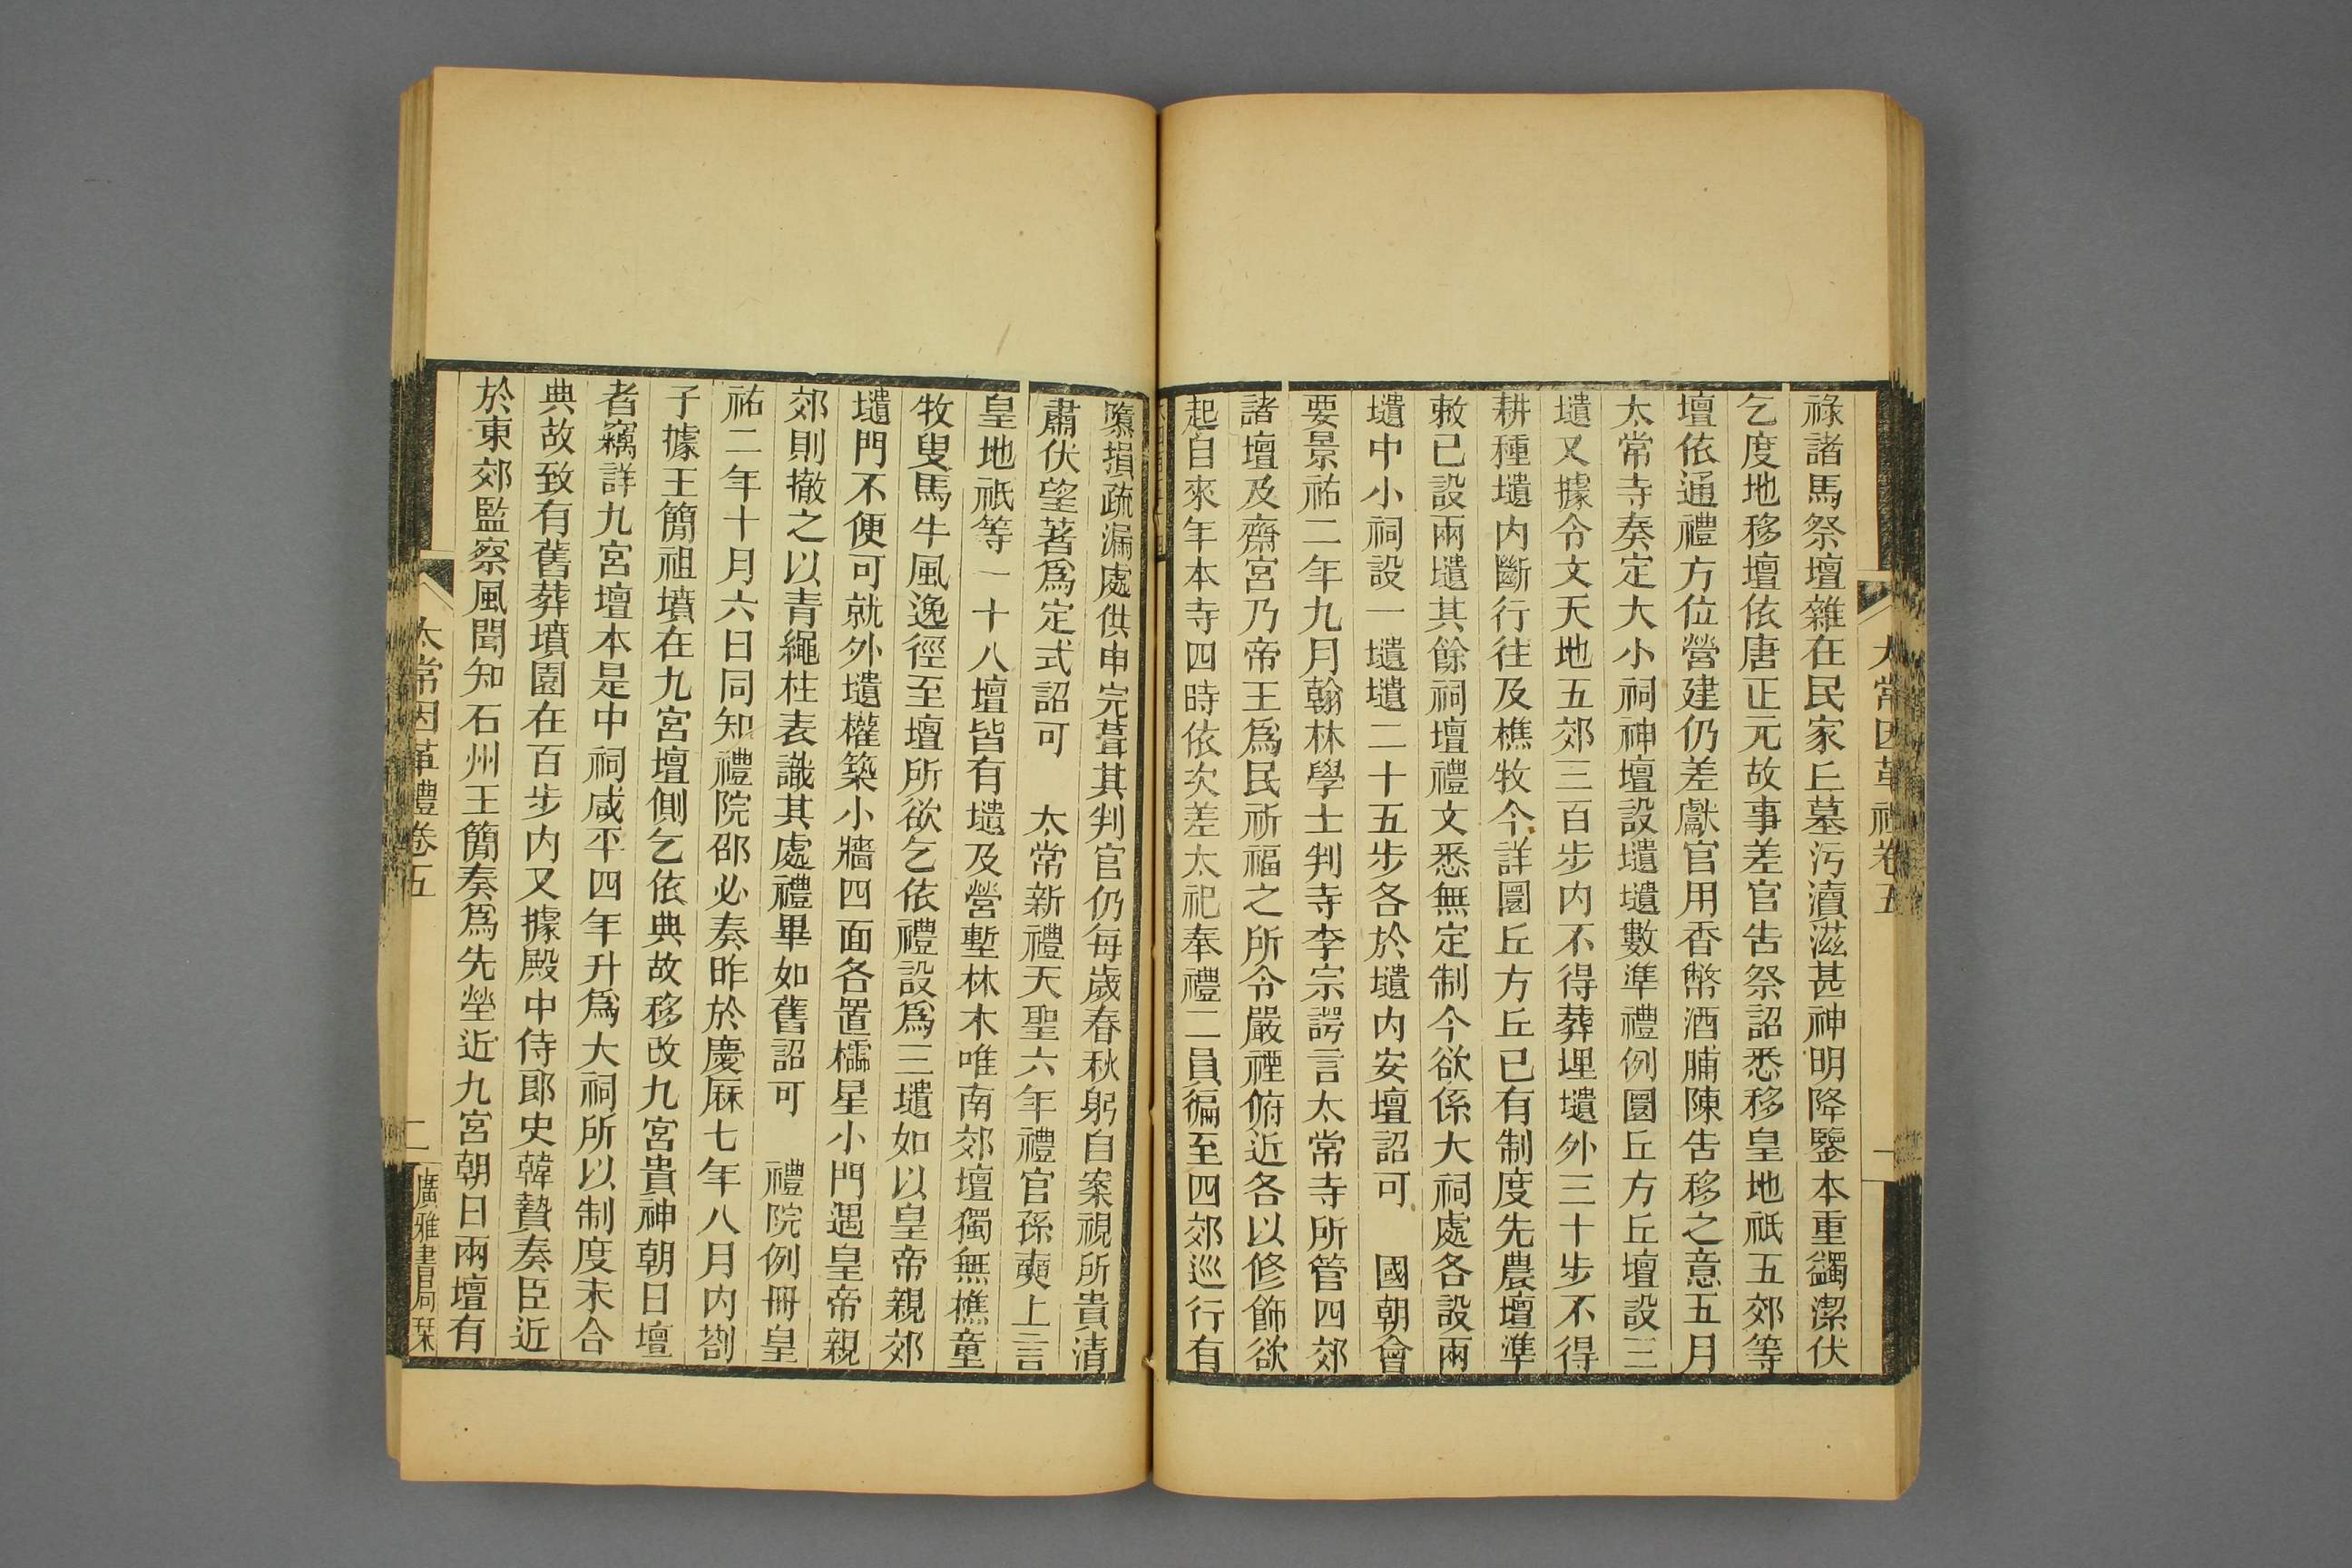 太常因革禮卷五
一
祿諸馬祭壇雜在民家丘墓污瀆滋甚神明降鑒本重蠲潔伏
乞度地移壇依唐正元故事差官告祭詔悉移皇地祇五郊等
壇依通禮方位營建仍差獻官用香幣酒脯陳告移之意五月
太常寺奏定大小祠神壇設壝壝數準禮例圜丘方丘壇設三
壝又據令文天地五郊三百步內不得葬埋壝外三十步不得
耕種壝內斷行往及樵牧今詳圜丘方丘已有制度先農壇準
敕已設兩壝其餘祠壇禮文悉無定制今欲係大祠處各設兩
壝中小祠設一壝壝二十五步各於壝內安壇詔可　國朝會
要景祐二年九月翰林學士判寺李宗諤言太常寺所管四郊
諸壇及齋宮乃帝王為民祈福之所令嚴禋俯近各以修飾欲
起自來年本寺四時依次差太祀奉禮二員徧至四郊巡行有
隳損疏漏處供申完葺其判官仍每歲春秋躬自案視所貴清
肅伏望著爲定式詔可　太常新禮天聖六年禮官孫奭上言
皇地祇等一十八壇皆有壝及營塹林木唯南郊壇獨無樵童
牧叟馬牛風逸徑至壇所欲乞依禮設爲三壝如以皇帝親郊
壝門不便可就外壝權築小牆四面各置櫺星小門遇皇帝親
郊則撤之以青繩柱表識其處禮畢如舊詔可　禮院例冊皇
祐二年十月六日同知禮院邵必奏昨於慶厤七年八月內劄
子據王簡祖墳在九宮壇側乞依典故移改九宮貴神朝日壇
者竊詳九宮壇本是中祠咸平四年升爲大祠所以制度未合
典故致有舊葬墳園在百步內又據殿中侍郎史韓贄奏臣近
於東郊監察風聞知石州王簡奏爲先塋近九宮朝日兩壇有
太常因革禮卷五
二
廣雅書局栞